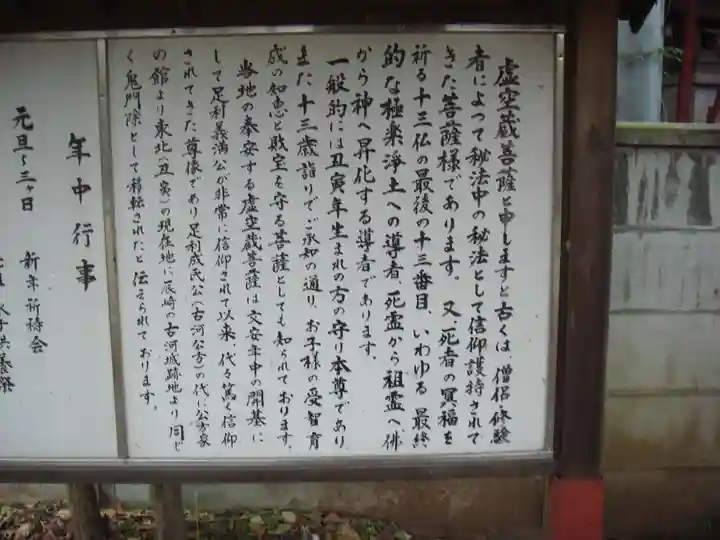 虚空蔵菩薩と申しますと古くは、僧侶、修験
者によって秘法中の秘法として信仰護持されて
きた菩薩様であります。又、死者の冥福を
祈る十三仏の最後の十三番目、いわゆる最終
的な極楽浄土への導者、死霊から祖霊へ佛
から神へ昇化する導者であります。
一般的には丑寅年生まれの方の守り本尊であり
また十三歳詣りでご承知の通り、お子様の受智育
成の知恵と財宝を守る菩薩としても知られております。
当地の奉安する虚空蔵菩薩は文安年中の開基に
して足利義満公が非常に信仰されて以来代々篤く信仰
されてきた尊像であり足利成氏公(古河公方)の代に公方家
の館より東北(丑寅)の現在地に辰崎の古河城跡地より同じ
く鬼門除として移転されたと伝えられております。
年中行事
元旦〜三ヶ日 新年祈祷会
水子供養祭